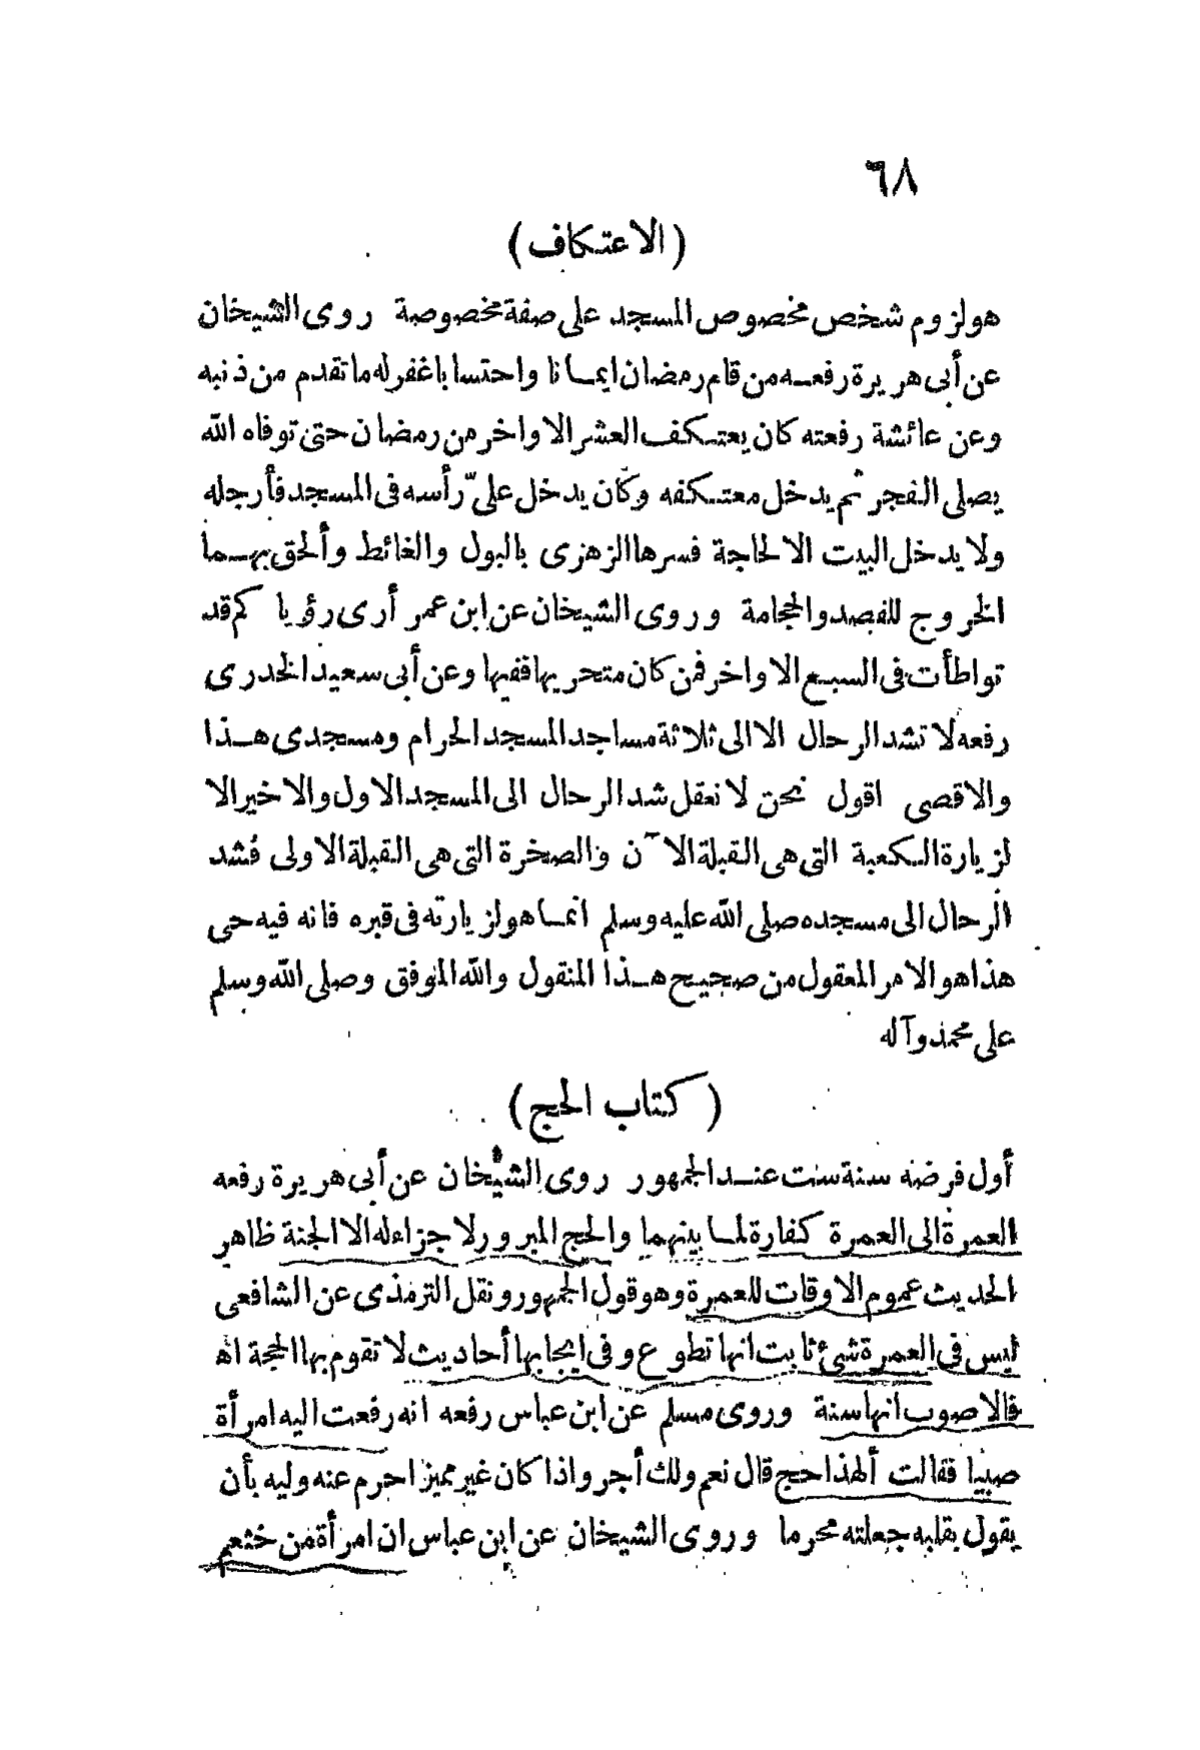 ٦٨
(الاعتكاف)
هو لزوم شخص مخصوص المسجد على صفة مخصوصة روى الشيخان
عن أبى هريرة رفعه من قام رمضان ايمانا واحتسابا غفر له ما تقدم من ذنبه
وعن عائشة رفعته كان يعتكف العشر الاواخر من رمضان حتى توفاه الله
يصلى الفجر ثم يدخل معتكفه وكان يدخل علىّ رأسه فى المسجد فأرجله
ولا يدخل البيت الا لحاجة فسرها الزهرى بالبول والغائط وألحق بهما
الخروج للفصد والحجامة وروى الشيخان عن ابن عمر أرى رؤياكم قد
تواطأت فى السبع الاواخر فمن كان متحريها ففيها وعن أبى سعيد الخدرى
رفعه لا تشد الرحال الا الى ثلاثة مساجد المسجد الحرام ومسجدى هذا
والاقصى اقول نحن لا نعقل شد الرحال الى المسجد الاول والاخير الا
لزيارة الكعبة التى هى القبلة الآن والصخرة التى هى القبلة الاولى فشد
الرحال الى مسجده صلى الله عليه وسلم انما هو لزيارته فى قبره فانه فيه حى
هذا هو الامر المعقول من صحيح هذا المنقول والله الموفق وصلى الله وسلم
على محمد وآله
(كتاب الحج)
أول فرضه سنة ست عند الجمهور روى الشيخان عن أبى هريرة رفعه
العمرة الى العمرة كفارة لما بينهما والحج المبرور لا جزاء له الا الجنة ظاهر
الحديث عموم الاوقات للعمرة وهو قول الجمهور ونقل الترمذى عن الشافعى
ليس فى العمرة شئ ثابت انها تطوع وفى ايجابها أحاديث لا تقوم بها الحجة اه
فالاصوب انها سنة وروى مسلم عن ابن عباس رفعه انه رفعت اليه امرأة
صبيا فقالت ألهذا حج قال نعم ولك أجر واذا كان غير مميز احرم عنه وليه بأن
يقول بقلبه جعلته محرما وروى الشيخان عن ابن عباس ان امرأة من خثعم